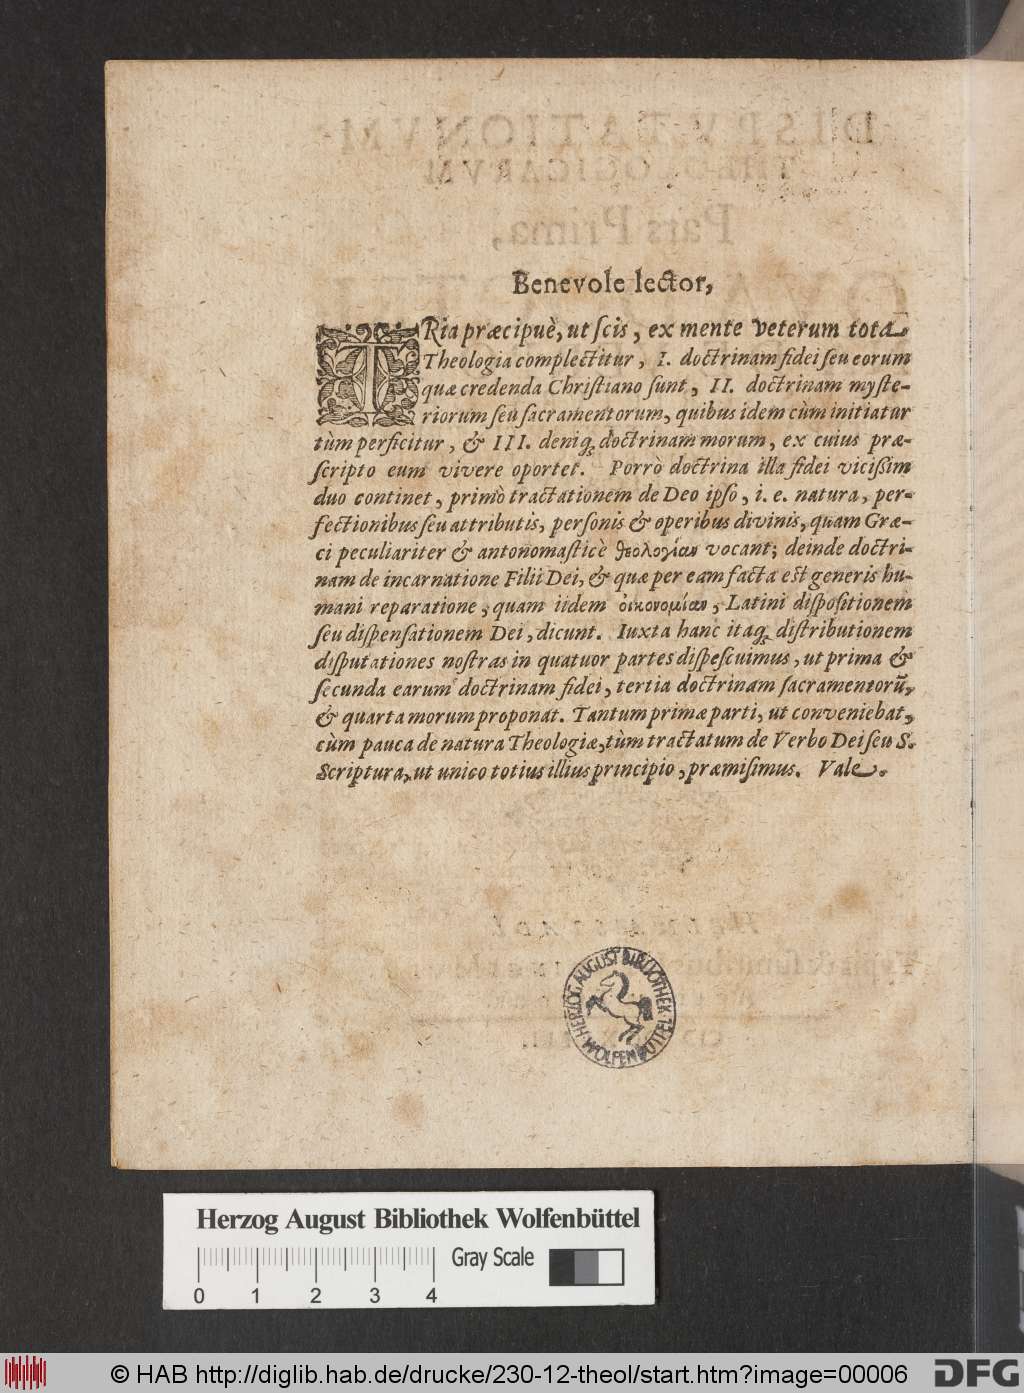 Benevole lector,
TRia præcipuè, ut ſcis, ex mente veterum tota
Theologia complectitur, I. doctrinam fidei ſeu eorum
quæ credenda Chriſtiano ſunt, II. doctrinam myſte-
riorum ſeu ſacramentorum, quibus idem cùm initiatur
tùm perficitur, & III. deniq; doctrinam morum, ex cuius præ-
ſcripto eum vivere oportet. Porrò doctrina illa fidei viciſſim
duo continet, primò tractationem de Deo ipſo, i. e. natura, per-
fectionibus ſeu attributis, perſonis & operibus divinis, quam Græ-
ci peculiariter & antonomaſticè θεολογίαν vocant; deinde doctri-
nam de incarnatione Filii Dei, & quæ per eam facta est generis hu-
mani reparatione, quam iidem οἰκονομίαν, Latini diſpoſitionem
ſeu diſpenſationem Dei, dicunt. Iuxta hanc itaq; diſtributionem
diſputationes noſtras in quatuor partes diſpeſcuimus, ut prima &
ſecunda earum doctrinam fidei, tertia doctrinam ſacramentorũ,
& quarta morum proponat. Tantum primæ parti, ut conveniebat,
cùm pauca de natura Theologiæ, tùm tractatum de Verbo Dei ſeu S.
Scriptura, ut unico totius illius principio, præmiſimus. Vale.
HERZOG AUGUST BIBLIOTHEK
WOLFENBÜTTEL
Herzog August Bibliothek Wolfenbüttel
Gray Scale
0 1 2 3 4
© HAB http://diglib.hab.de/drucke/230-12-theol/start.htm?image=00006
DFG